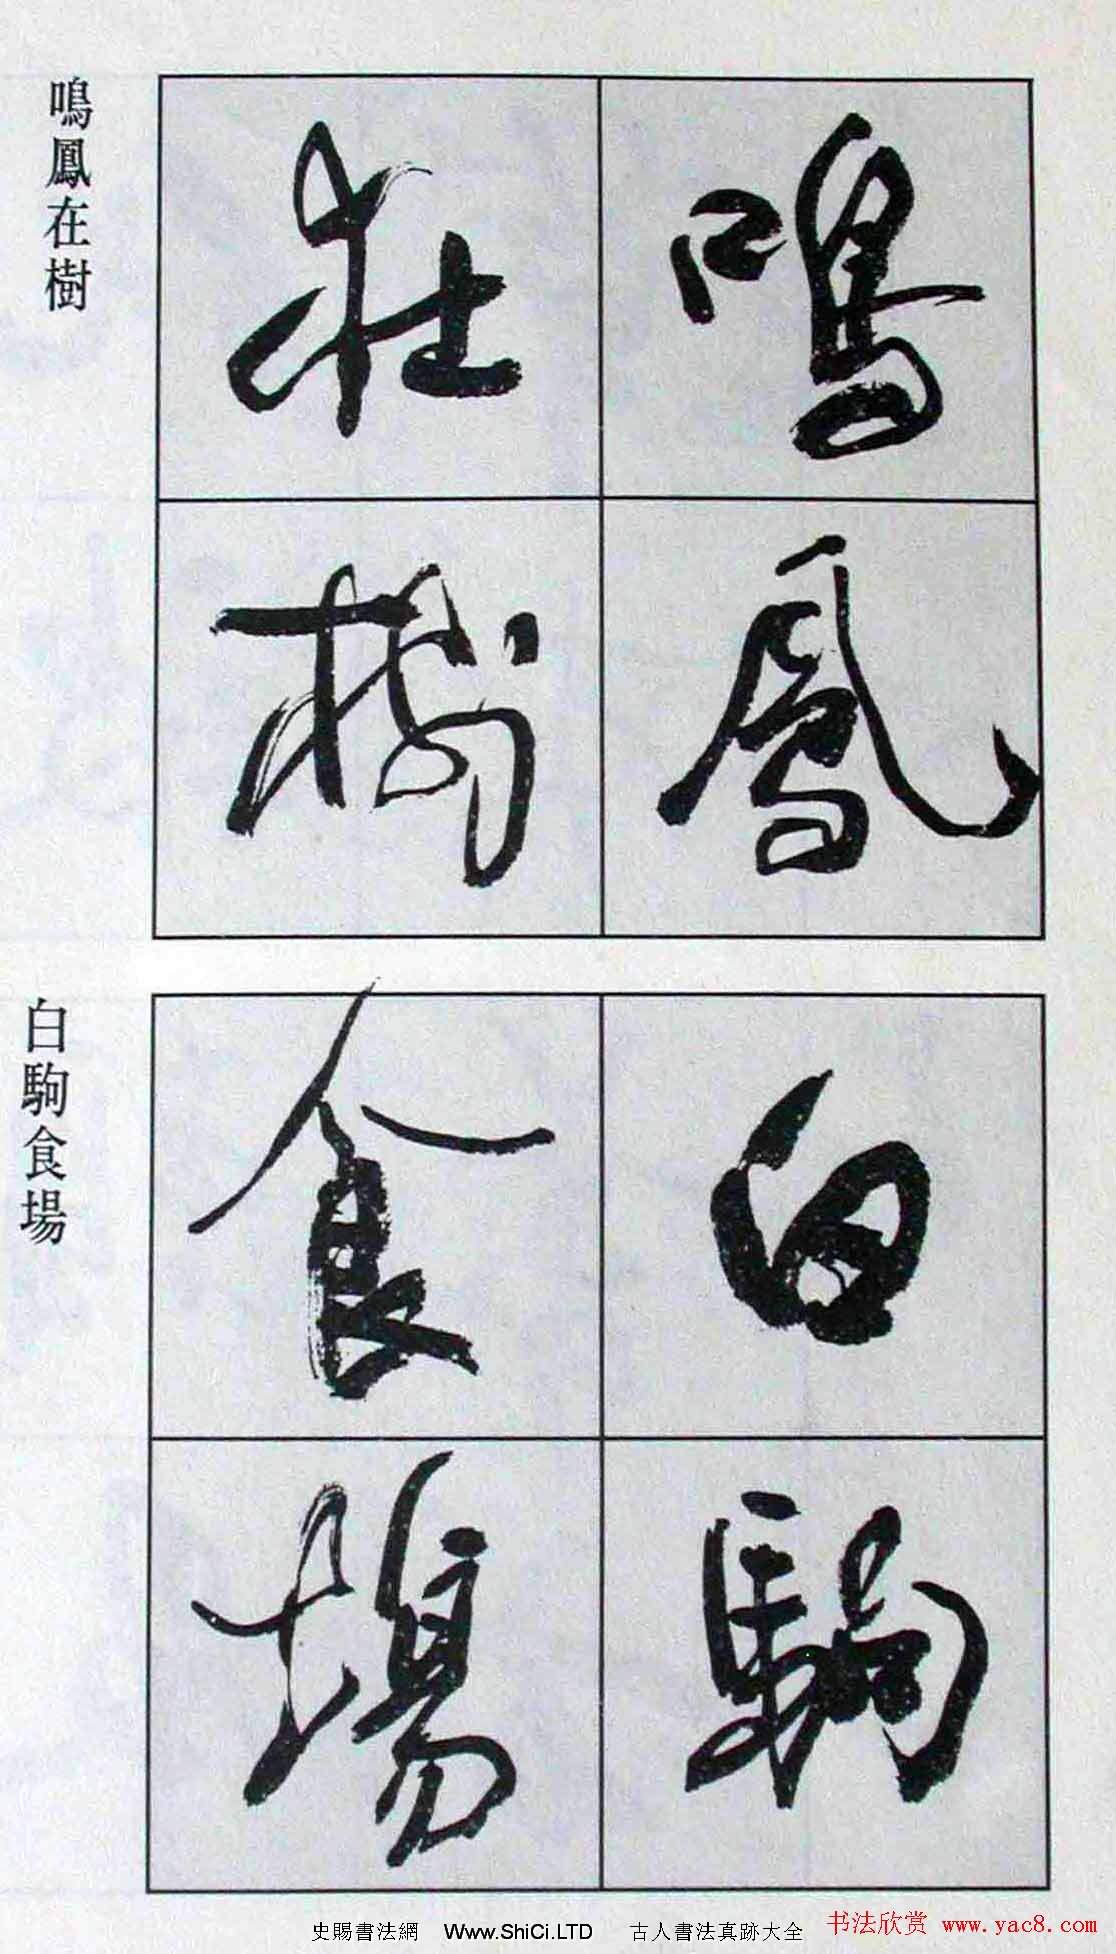 鳴鳳
在樹
鳴鳳在樹
白駒
食場
白駒食場
史賜書法網 Www.ShiCi.LTD 古人書法真跡大全
书法欣赏 www.yac8.com